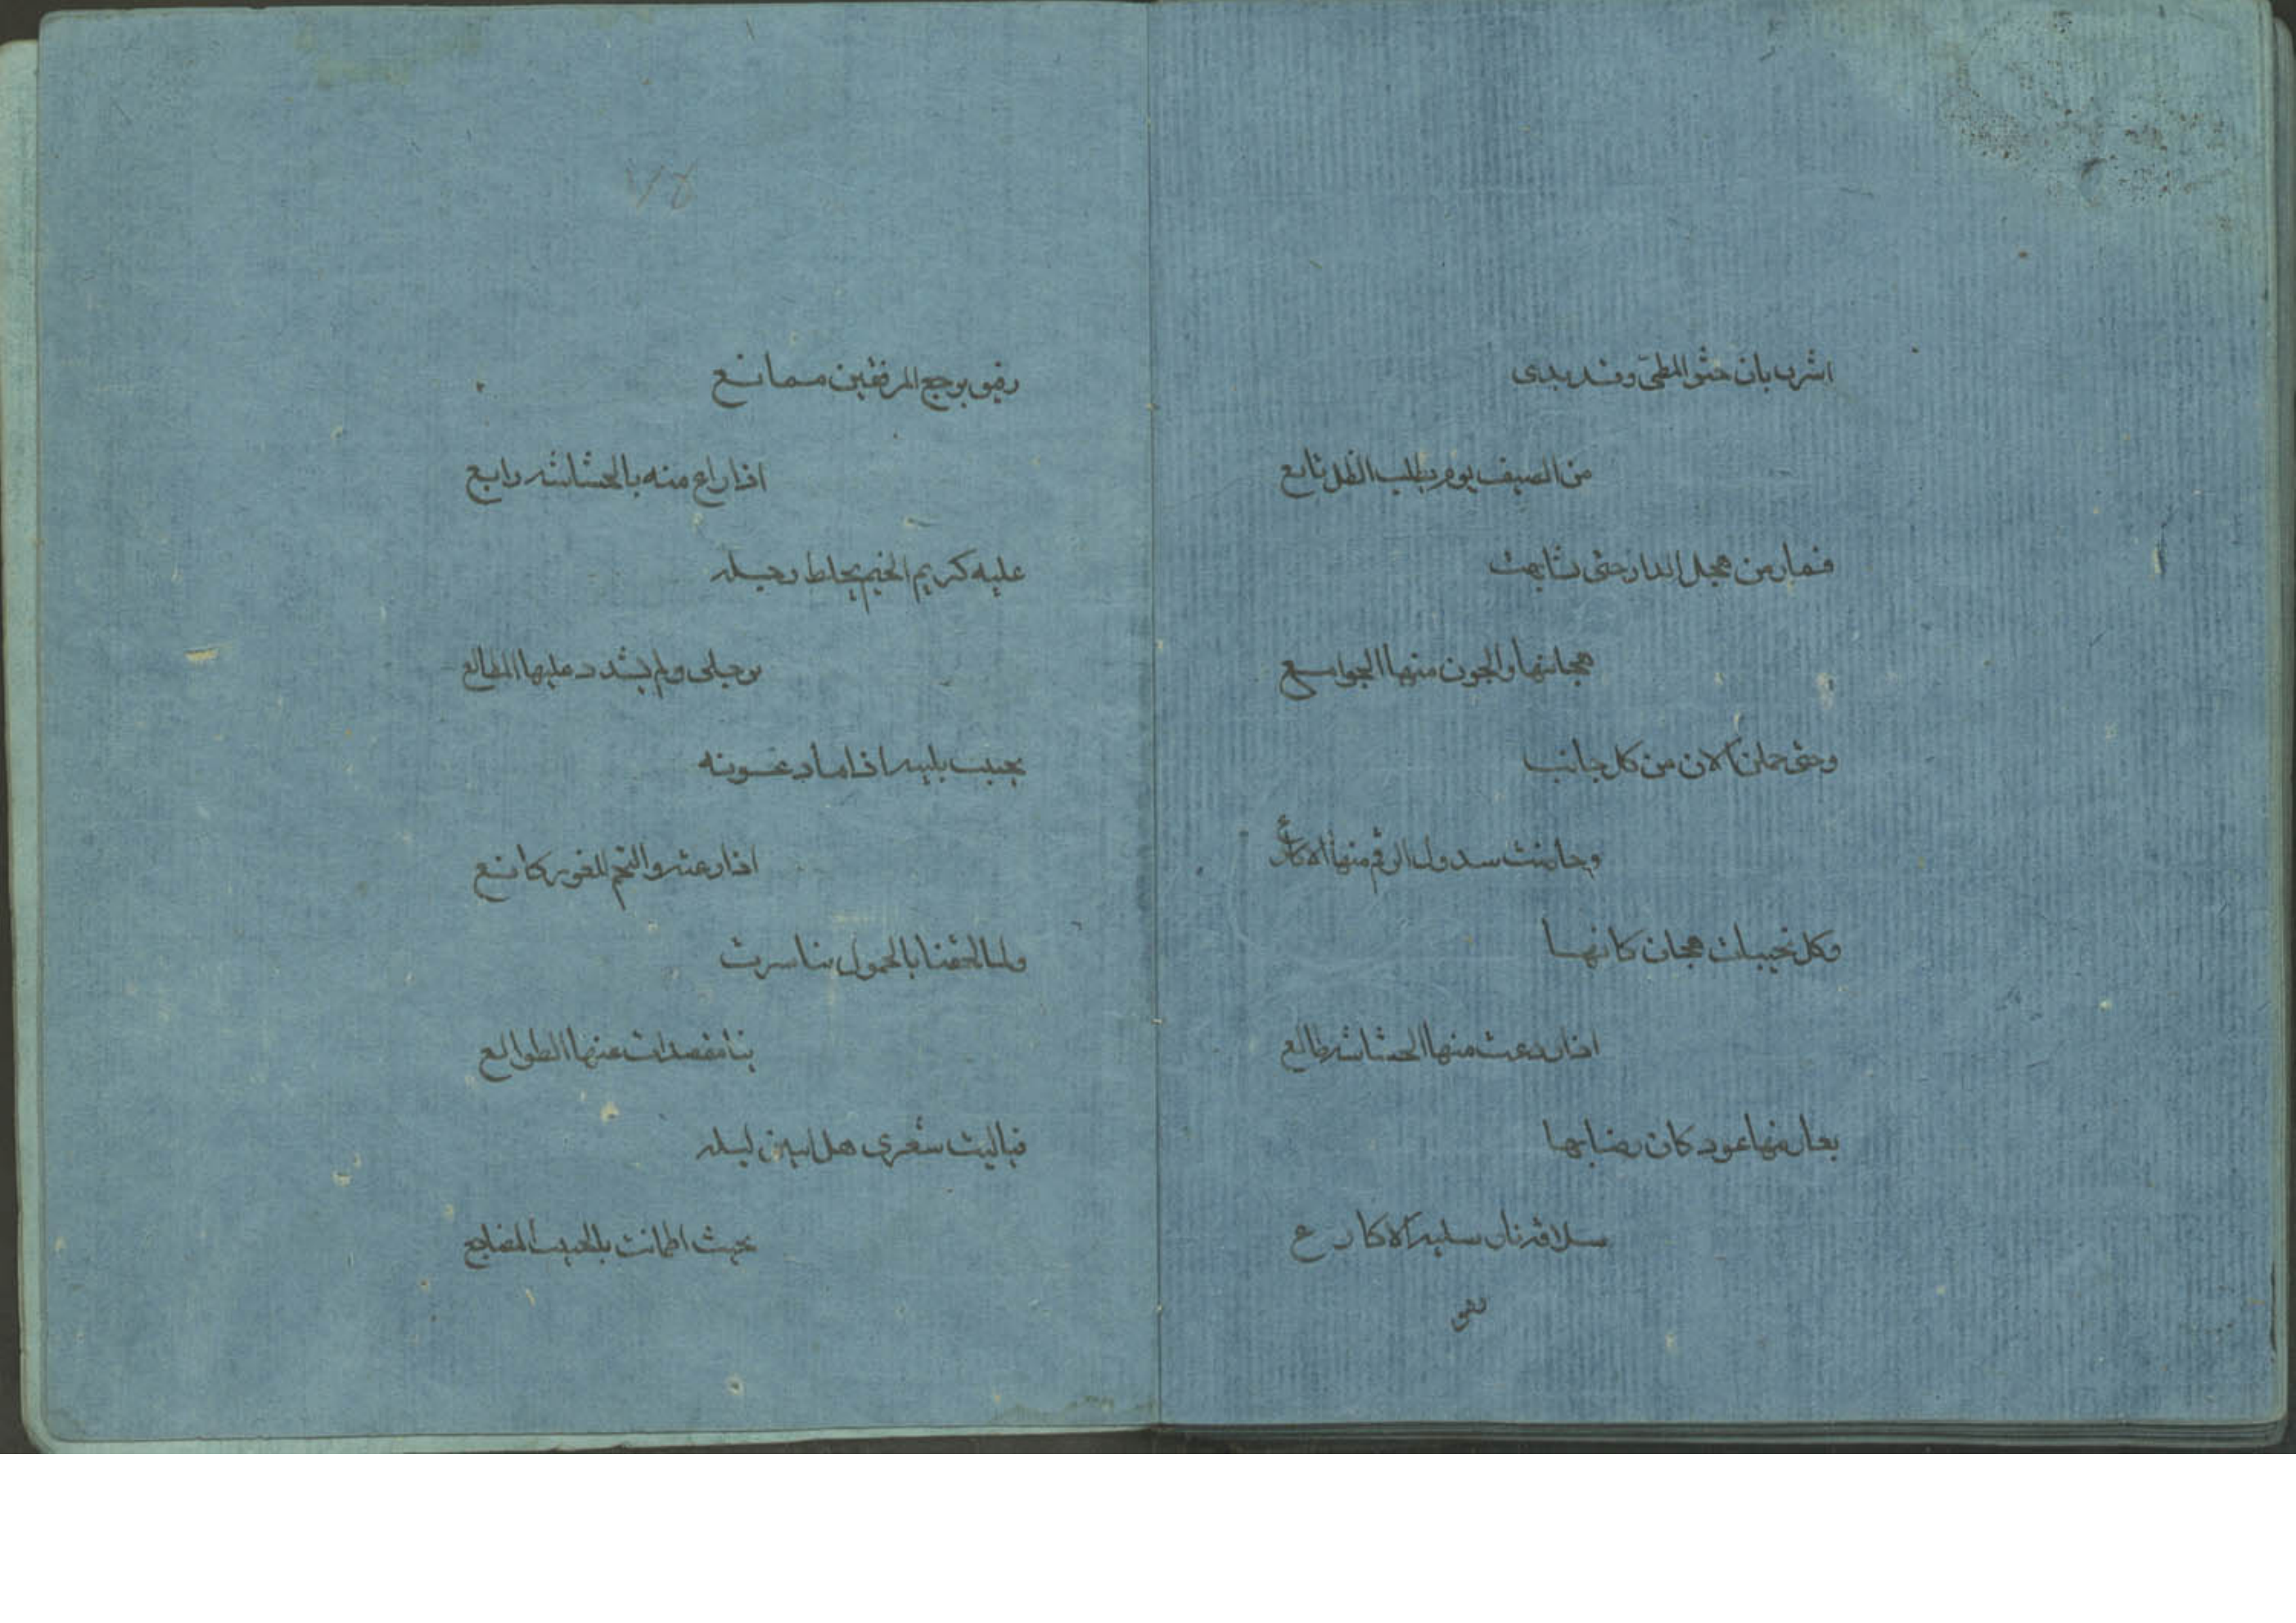 اشرن بان حثوا المطى وقد بدى
من الصيف يوم يطلب الظل تابع
فمارمن هجل الدار حتى تشابهت
هجانها والجون منها الجواسع
وحتى حملن الان من كل جانب
وجانت سدول الرقم منها الاكارع
وكل نجيبات هجان كانها
اذا ردعت منها الخشاشة طالع
يعارضها عود كان رضابها
سلافة نار سليه الاكارع
رفيق برجع المرفقين ممانع
اذا راع منه بالخشاشة رايع
عليه كريم الخيم يخلط رحله
برحلى ولم يشدد عليها المطالع
يجيب بلبيه اذا ما دعوته
اذا رعثه والنجم للغور كانع
ولما لحقنا بالحمول بنا سرت
بنا مقصدات عنها الطوالع
فياليت شعرى هل ابيتن ليله
بحيث اطمانت بالحبيب المضاجع